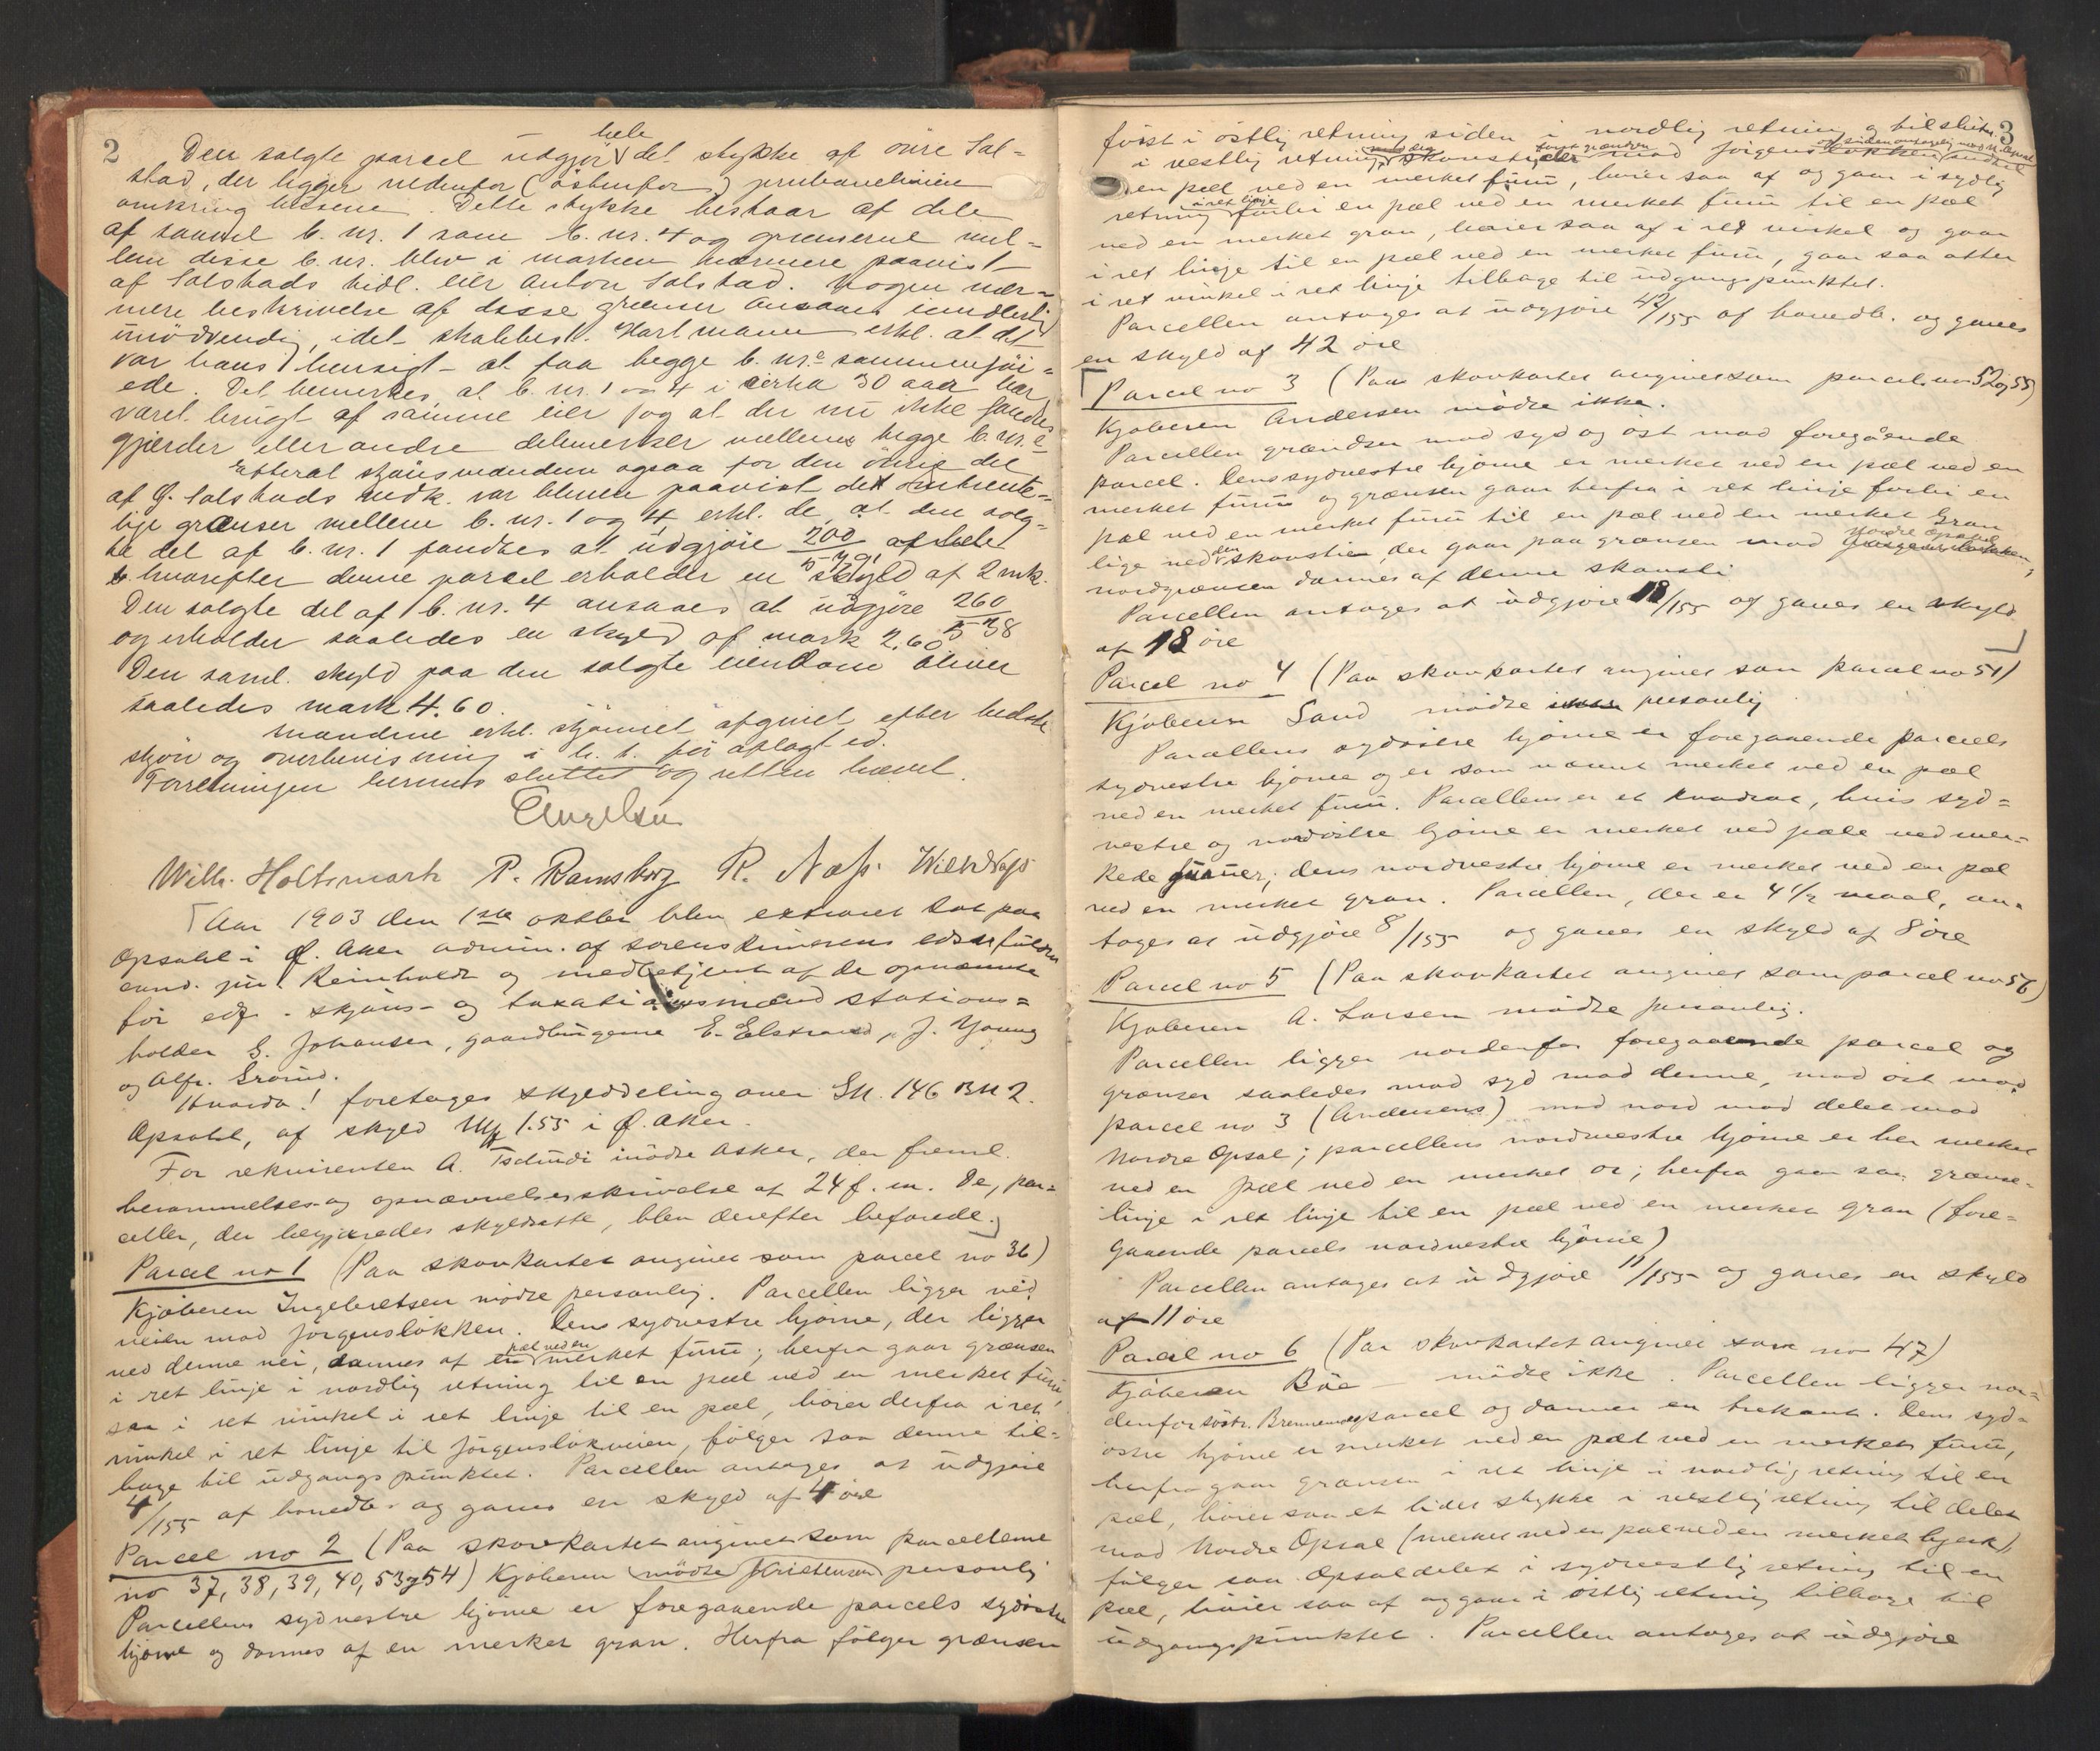 2
Den solgte parcel udgjör hele det stykke af övre Sal=
stad, der ligger nedenfor (östenfor) jernbanelinien
omkring husene. Dette stykke bestaar af dele
af saavel b. nr. 1 som b. nr. 4 og grænserne mel=
lem disse b. nr. blev i marken nærmere paavist
af Solstads tidl. eier Anton Solstad. Nogen nær=
mere beskrivelse af disse grænser ansaaes
unödvendig, idet skabbest. Hartmann erkl. at det
var hans hensigt at faa begge b. nr.e sammenföi=
ede. Det bemerkes, at b. nr. 1 og 4 i cirka 30 aar har
været brugt af samme eier og at der nu ikke fandtes
gjerder eller andre delemerker mellem begge b. nr.e
Efterat skjönsmændene ogsaa for den övrige del
af Ö. Solstads vedk. var blevne paavist de omtrente=
lige grænser mellem b. nr. 1 og 4, erkl. de, at den solg=
te del af b. nr. 1 fandtes at udgjöre 200
hvorefter denne parsel erholder en skyld af 2 mk.
Den solgte del af b. nr. 4 ansaaes at udgjöre 260
og erholder saaledes en skyld af mark 2,60
Den saml. skyld paa den solgte eiendom bliver
saaledes mark 4.60.
Mændene erkl. skjönnet afgivet efter bedste
skjön og overbevisning i h. t. för aflagt ed.
Forretningen hermed sluttet og retten hævet.
Engelsen
Wilh. Holtsmark P. Ramsborg R. Næss.
Aar 1903 den 1ste oktbr blev extraret sat paa
Opsahl i Ö. Aker admin. af sorenskriverens edsv. fuldm
cand. jur. Reinholdt og medbetjent af de opnævnte
för edf. skjöns- og taxationsmænd stations=
holder G. Johansen, gaardbrugerne E. Elstrand, J. Young
og Alfr. Grorud.
Hvorda! foretages skylddeling over Gn. 146 Bn 2.
Opsahl, af skyld Mk 1.55 i Ö. Aker.
For rekvirenten A. Tschudi mödte Asker, der freml.
berammelses- og opnævnelsesskrivelse af 24 f. m. De par=
celler, der begjæredes skyldsatte, blev derefter befarede.
Parcel no 1 (Paa skovkartet angivet som parcel no 36)
Kjöberen Ingebretsen mödte personlig. Parcellen ligger ved
veien mod Jörgenslökken. Dens sydvestre hjörne, der ligger
ved denne vei, dannes af en pæl ved en merket furu; herfra gaar grænsen
i ret linje i nordlig retning til en pæl ved en merket furu,
saa i ret vinkel i ret linje til en pæl, böier derfra i ret
vinkel i ret linje til Jörgenslökveien, fölger saa denne til=
bage til udgangspunktet. Parcellen antages at udgjöre
4/155 af hovedb. og gaves en skyld af 4 öre
Parcel no 2 (Paa skovkartet angivet som parcellerne
no 37, 38, 39, 40, 53 og 54) Kjöberen mödte Kristensen personlig
Parcellens sydvestre hjörne er foregaaende parcels sydöstre
hjörne og dannes af en merket gran. Herfra fölger grænsen
3
först i östlig retning siden i nordlig retning og tilslut
i vestlig retning skovsti mod Jörgenslökken indtil
en pæl ved en merket furu, böier saa af og gaar i sydlig
retning i ret linje forbi en pæl ved en merket furu til en pæl
ved en merket gran, böier saa af i ret vinkel og gaar
i ret linje til en pæl ved en merket furu, gaar saa atter
i ret vinkel i ret linje tilbage til udgangspunktet.
Parcellen antages at udgjöre 42/155 af hovedb. og gaves
en skyld af 42 öre
Parcel no 3 (Paa skovkartet angivet som parcel no 52 og 55)
Kjöberen Andersen mödte ikke.
Parcellen grændser mod syd og öst mod foregående
parcel. Dens sydvestre hjörne er merket ved en pæl ved en
merket furu og grænsen gaar herfra i ret linje forbi en
pæl ved en merket furu til en pæl ved en merket Gran
lige ved den skovsti, der gaar paa grænsen mod Nordre Opsal
nordgrænsen dannes af denne skovsti
Parcellen antages at udgjöre 18/155 og gaves en skyld
af 18 öre
Parcel no 4 (Paa skovkartet angivet som parcel no 51)
Kjöberen Sand mödte personlig
Parcellens sydöstre hjörne er foregaaende parcels
sydvestre hjörne og er som nævnt merket ved en pæl
ved en merket furu. Parcellen er et kvadrat, hvis syd=
vestre og nordöstre hjörne er merket ved pæle ved mer=
kede furuer; dens nordvestre hjörne er merket ved en pæl
ved en merket gran. Parcellen, der er 4 1/2 maal, an=
tages at udgjöre 8/155 og gaves en skyld af 8 öre
Parcel no 5 (Paa skovkartet angivet som parcel no 56)
Kjöberen A. Larsen mödte personlig.
Parcellen ligger nordenfor foregaaende parcel og
grænser saaledes mod syd mod denne, mod öst mod
parcel no 3 (Andersens) mod nord mod delet mod
Nordre Opsal; parcellens nordvestre hjörne er her merket
ved en pæl ved en merket or; herfra gaar saa grænse=
linje i ret linje til en pæl ved en merket gran (fore=
gaaende parcels nordvestre hjörne)
Parcellen antages at udgjöre 11/155 og gaves en skyld
af 11 öre
Parcel no 6 (Paa skovkartet angivet som no 47)
Kjöberen Böe mödte ikke. Parcellen ligger nor=
denfor söstr. parcel og danner en trekant. Dens syd=
östre hjörne er merket ved en pæl ved en merket furu,
herfra gaar grænsen i ret linje i nordlig retning til en
pæl, böier saa et lidet stykke i vestlig retning til delet
mod Nordre Opsal (merket ved en pæl ved en merket bjerk)
fölger saa Opsaldelet i sydvestlig retning til en
pæl, böier saa af og gaar i östlig retning tilbage til
udgangspunktet. Parcellen antages at udgjöre